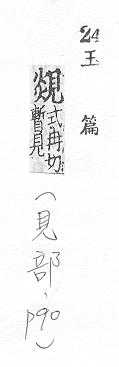 24 玉篇
覢
式冉切
暫見
(見部、p90)